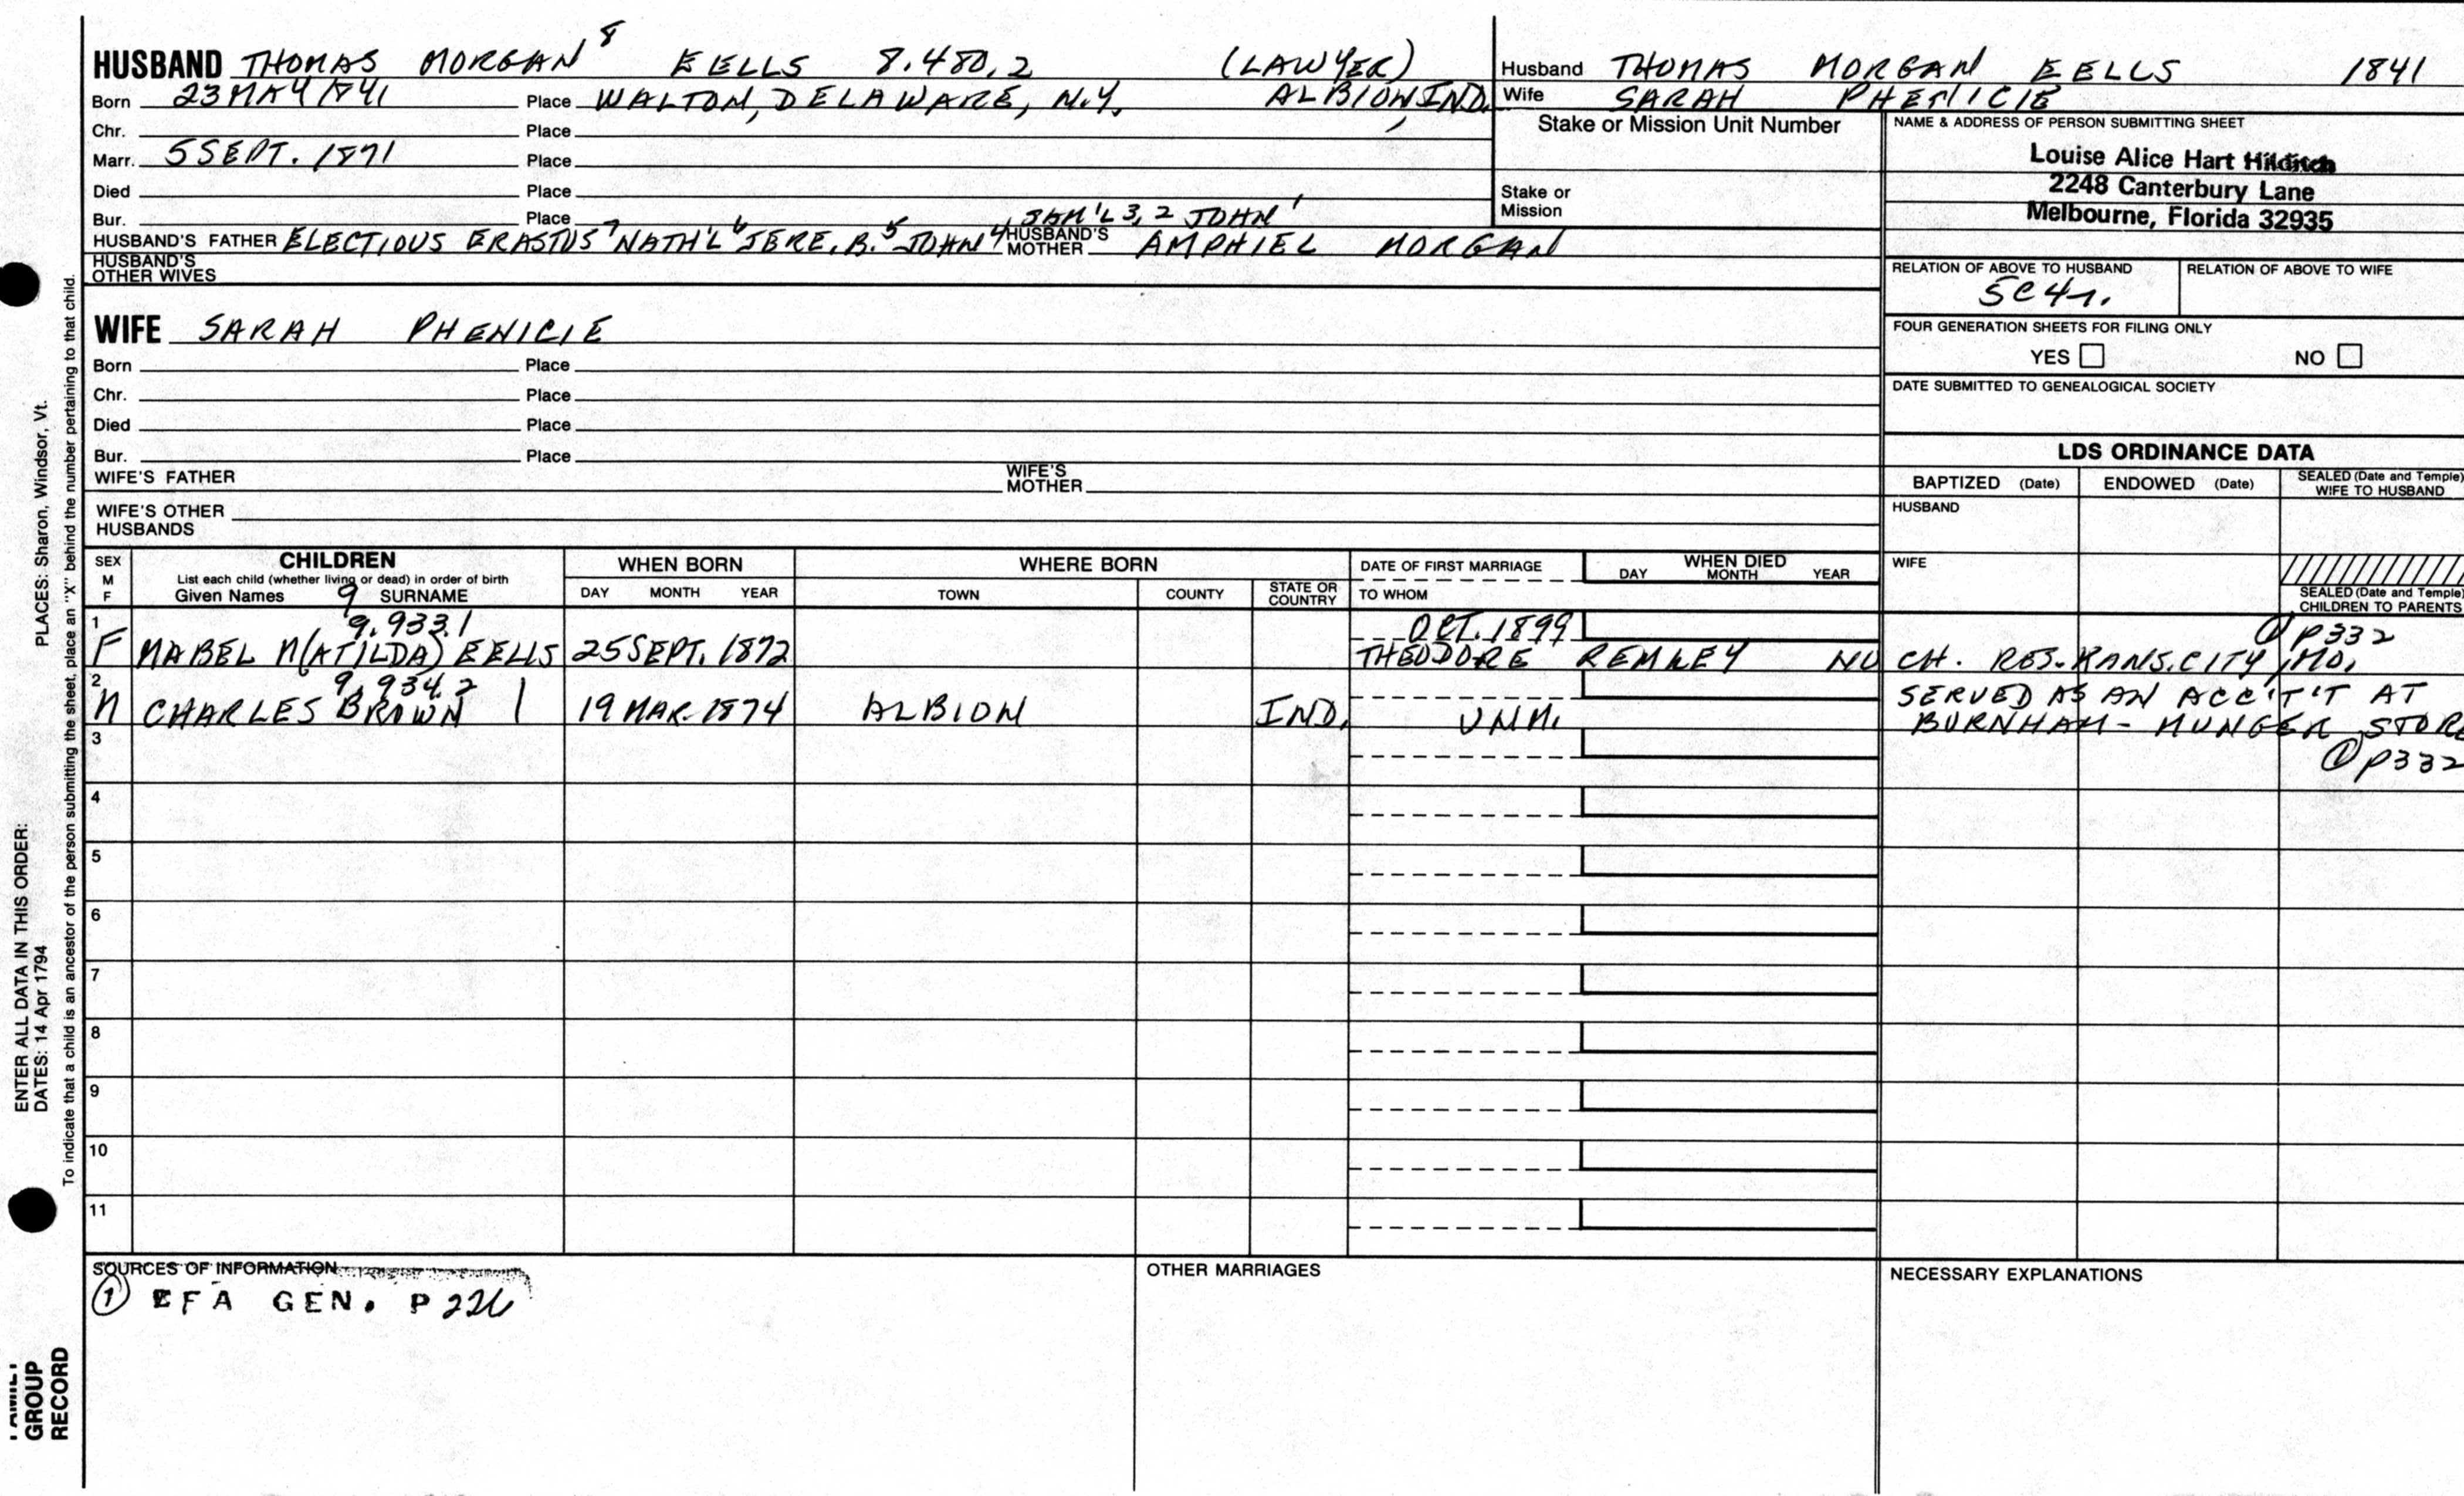 HUSBAND THOMAS MORGAN 8 EELLS 8.480.2 (LAWYER)
Born 23 MAY 1841 Place WALTON, DELAWARE, N.Y. ALBION, IND.
Chr. Place
Marr. 5 SEPT. 1871 Place
Died Place
Bur. Place SAM'L 3, 2 JOHN 1
HUSBAND'S FATHER ELECTIOUS ERASTUS 7 NATH'L 6 JERE. B. 5 JOHN 4 HUSBAND'S MOTHER AMPHIEL MORGAN
HUSBAND'S
OTHER WIVES
Husband THOMAS MORGAN EELLS 1841
Wife SARAH PHENICIE
Stake or Mission Unit Number
Stake or
Mission
NAME & ADDRESS OF PERSON SUBMITTING SHEET
Louise Alice Hart Hilditch
2248 Canterbury Lane
Melbourne, Florida 32935
RELATION OF ABOVE TO HUSBAND RELATION OF ABOVE TO WIFE
5C4r.
FOUR GENERATION SHEETS FOR FILING ONLY
YES NO
DATE SUBMITTED TO GENEALOGICAL SOCIETY
WIFE SARAH PHENICIE
Born Place
Chr. Place
Died Place
Bur. Place
WIFE'S FATHER WIFE'S MOTHER
WIFE'S OTHER
HUSBANDS
LDS ORDINANCE DATA
BAPTIZED (Date) ENDOWED (Date) SEALED (Date and Temple)
WIFE TO HUSBAND
HUSBAND
WIFE
SEALED (Date and Temple)
CHILDREN TO PARENTS
SEX
M
F
CHILDREN
List each child (whether living or dead) in order of birth
Given Names 9 SURNAME
WHEN BORN
DAY MONTH YEAR
WHERE BORN
TOWN COUNTY STATE OR COUNTRY
DATE OF FIRST MARRIAGE
TO WHOM
WHEN DIED
DAY MONTH YEAR
1 9.933.1 OCT. 1899 ① P332
F MABEL M(ATILDA) EELLS 25 SEPT. 1872 THEODORE REMLEY NO CH. RES. KANS. CITY, MO.
2 9.934.2 SERVED AS AN ACC'T'T AT
M CHARLES BROWN | 19 MAR. 1874 ALBION IND. UNM. BURNHAM-MUNGER STORE
3 ① P332
4
5
6
7
8
9
10
11
SOURCES OF INFORMATION
① EFA GEN. P 226
OTHER MARRIAGES
NECESSARY EXPLANATIONS
ENTER ALL DATA IN THIS ORDER:
DATES: 14 Apr 1794 PLACES: Sharon, Windsor, Vt.
To indicate that a child is an ancestor of the person submitting the sheet, place an "X" behind the number pertaining to that child.
FAMILY
GROUP
RECORD